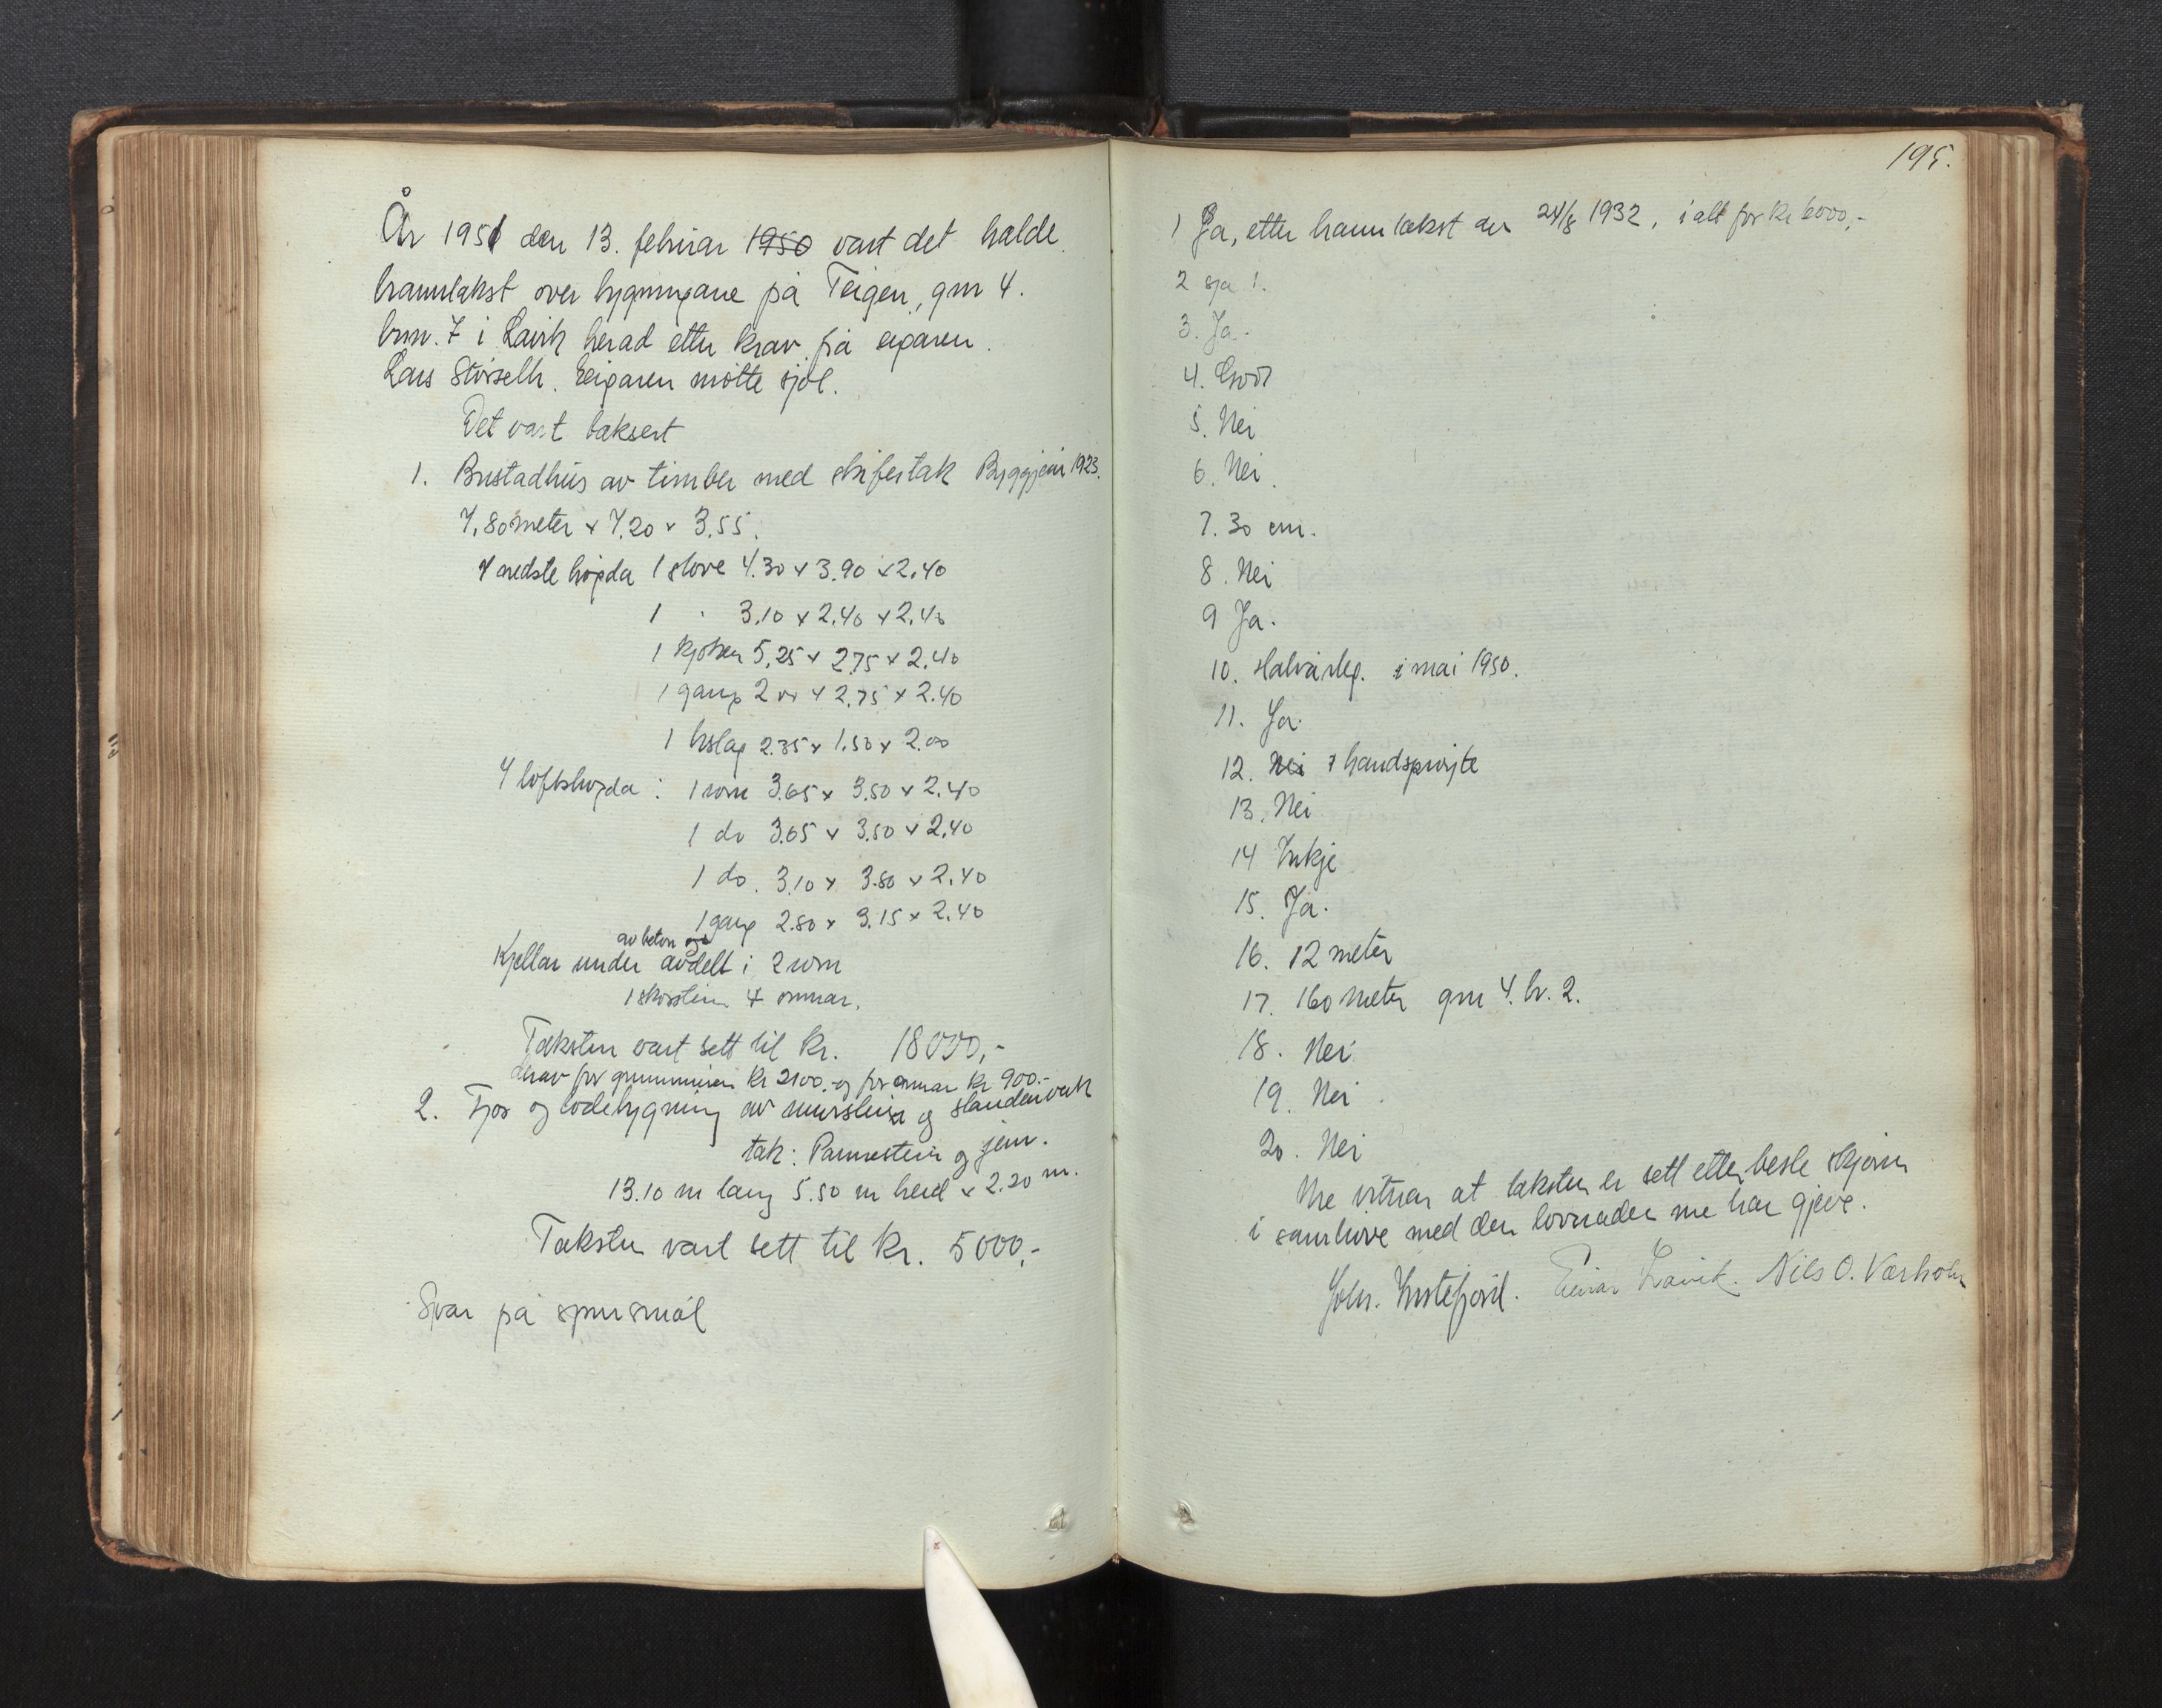 År 1951 den 13. februar 1950 vart det halde
branntakst over bygningane på Teigen, gnr 4.
brnr. 7 i Lavik herad etter krav frå eigaren.
Lars Eigaren møtte sjøl.
Det vart taksert
1. Bustadhus av timber med skifertak Byggjeår 1923.
7,80 meter x 7.20 x 3.55.
I nedste høgda 1 stove 4.30 x 3.90 x 2.40
1 " 3.10 x 2.40 x 2.40
1 kjøken 5,25 x 2.75 x 2.40
1 gang 2 x 2.75 x 2.40
1 bislag 2.35 x 1.50 x 2.00
I loftshøgda: 1 rom 3.65 x 3.50 x 2.40
1 do 3.65 x 3.50 x 2.40
1 do. 3.10 x 3.80 x 2.40
1 gang 2.80 x 3.15 x 2.40
av betong
Kjellar under avdelt i 2 rom
1 skorstein 4 omnar.
Taksten vart sett til kr. 18000,-
derav for grunnmuren kr 2100.- og for omnar kr 900.-
2. Fjos og lødebygning av murstein og standarverk
tak: Pannestein og jern.
13.10 m lang 5.50 m breid x 2.20 m.
Taksten vart sett til kr. 5000,-
Svar på spursmål
195.
1 Ja, etter branntakst av 24/8 1932, i alt for kr 6000,-
2 sjå 1.
3. Ja.
4. God
5. Nei
6. Nei.
7. 30 cm.
8. Nei
9 Ja.
10. Halvårleg. i mai 1950.
11. Ja.
12. Nei 1 handsprøjte
13. Nei
14 Inkje
15. Ja.
16. 12 meter
17. 160 meter gnr 4. br. 2.
18. Nei
19. Nei
20. Nei
Me vitnar at taksten er sett etter beste skjønn
i samhøve med den lovnaden me har gjeve.
Johs. Instefjord. Einar Lavik. Nils O. Værholm